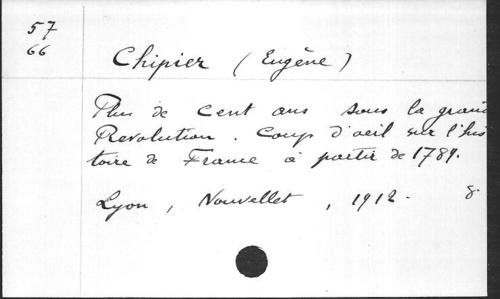 57
66
Chipier (Eugène)
Plus de cent ans sous la grand
Revolution. Coup d'oeil sur l'his
toire de France à partir de 1789.
Lyon, Nouvellet, 1912. 8.